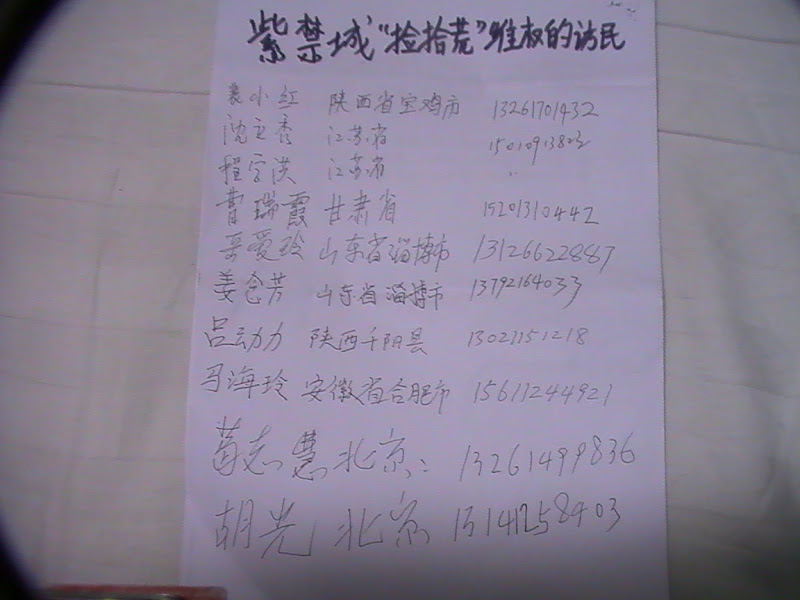 紫禁城“捡拾荒”维权的访民
袁小红 陕西省宝鸡市 13261701432
沈立秀 江苏省
程字洪 江苏省 〃
曹瑞霞 甘肃省 15201310442
爱玲 山东省淄博市 13126622887
姜念芳 山东省淄博市 13792164033
吕动力 陕西千阳县 13021151218
马海玲 安徽省合肥市 15611244921
葛志慧 北京: 13261499836
胡光 北京 13141258403